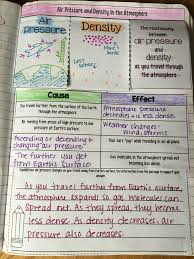 Air Pressure and Density in the Atmosphere
Air pressure
Density
The relationship between
air pressure
and
density
as you travel through
the atmosphere
Cause
Effect
You travel farther from the surface of the Earth through the atmosphere.
Atmospheric pressure decreases + is less dense!
Air moving from areas of high pressure to low pressure at Earth's surface.
Weather changes - wind, storms
Ascending or descending + changing air pressure!
Your ears "pop" while traveling in an airplane.
The further you get from Earth's surface
Gas molecules in the atmosphere spread out becoming less dense.
As you travel farther from Earth's surface,
the atmosphere expands so gas molecules can
spread out. As they spread, they become
less dense. As density decreases, air
pressure also decreases.